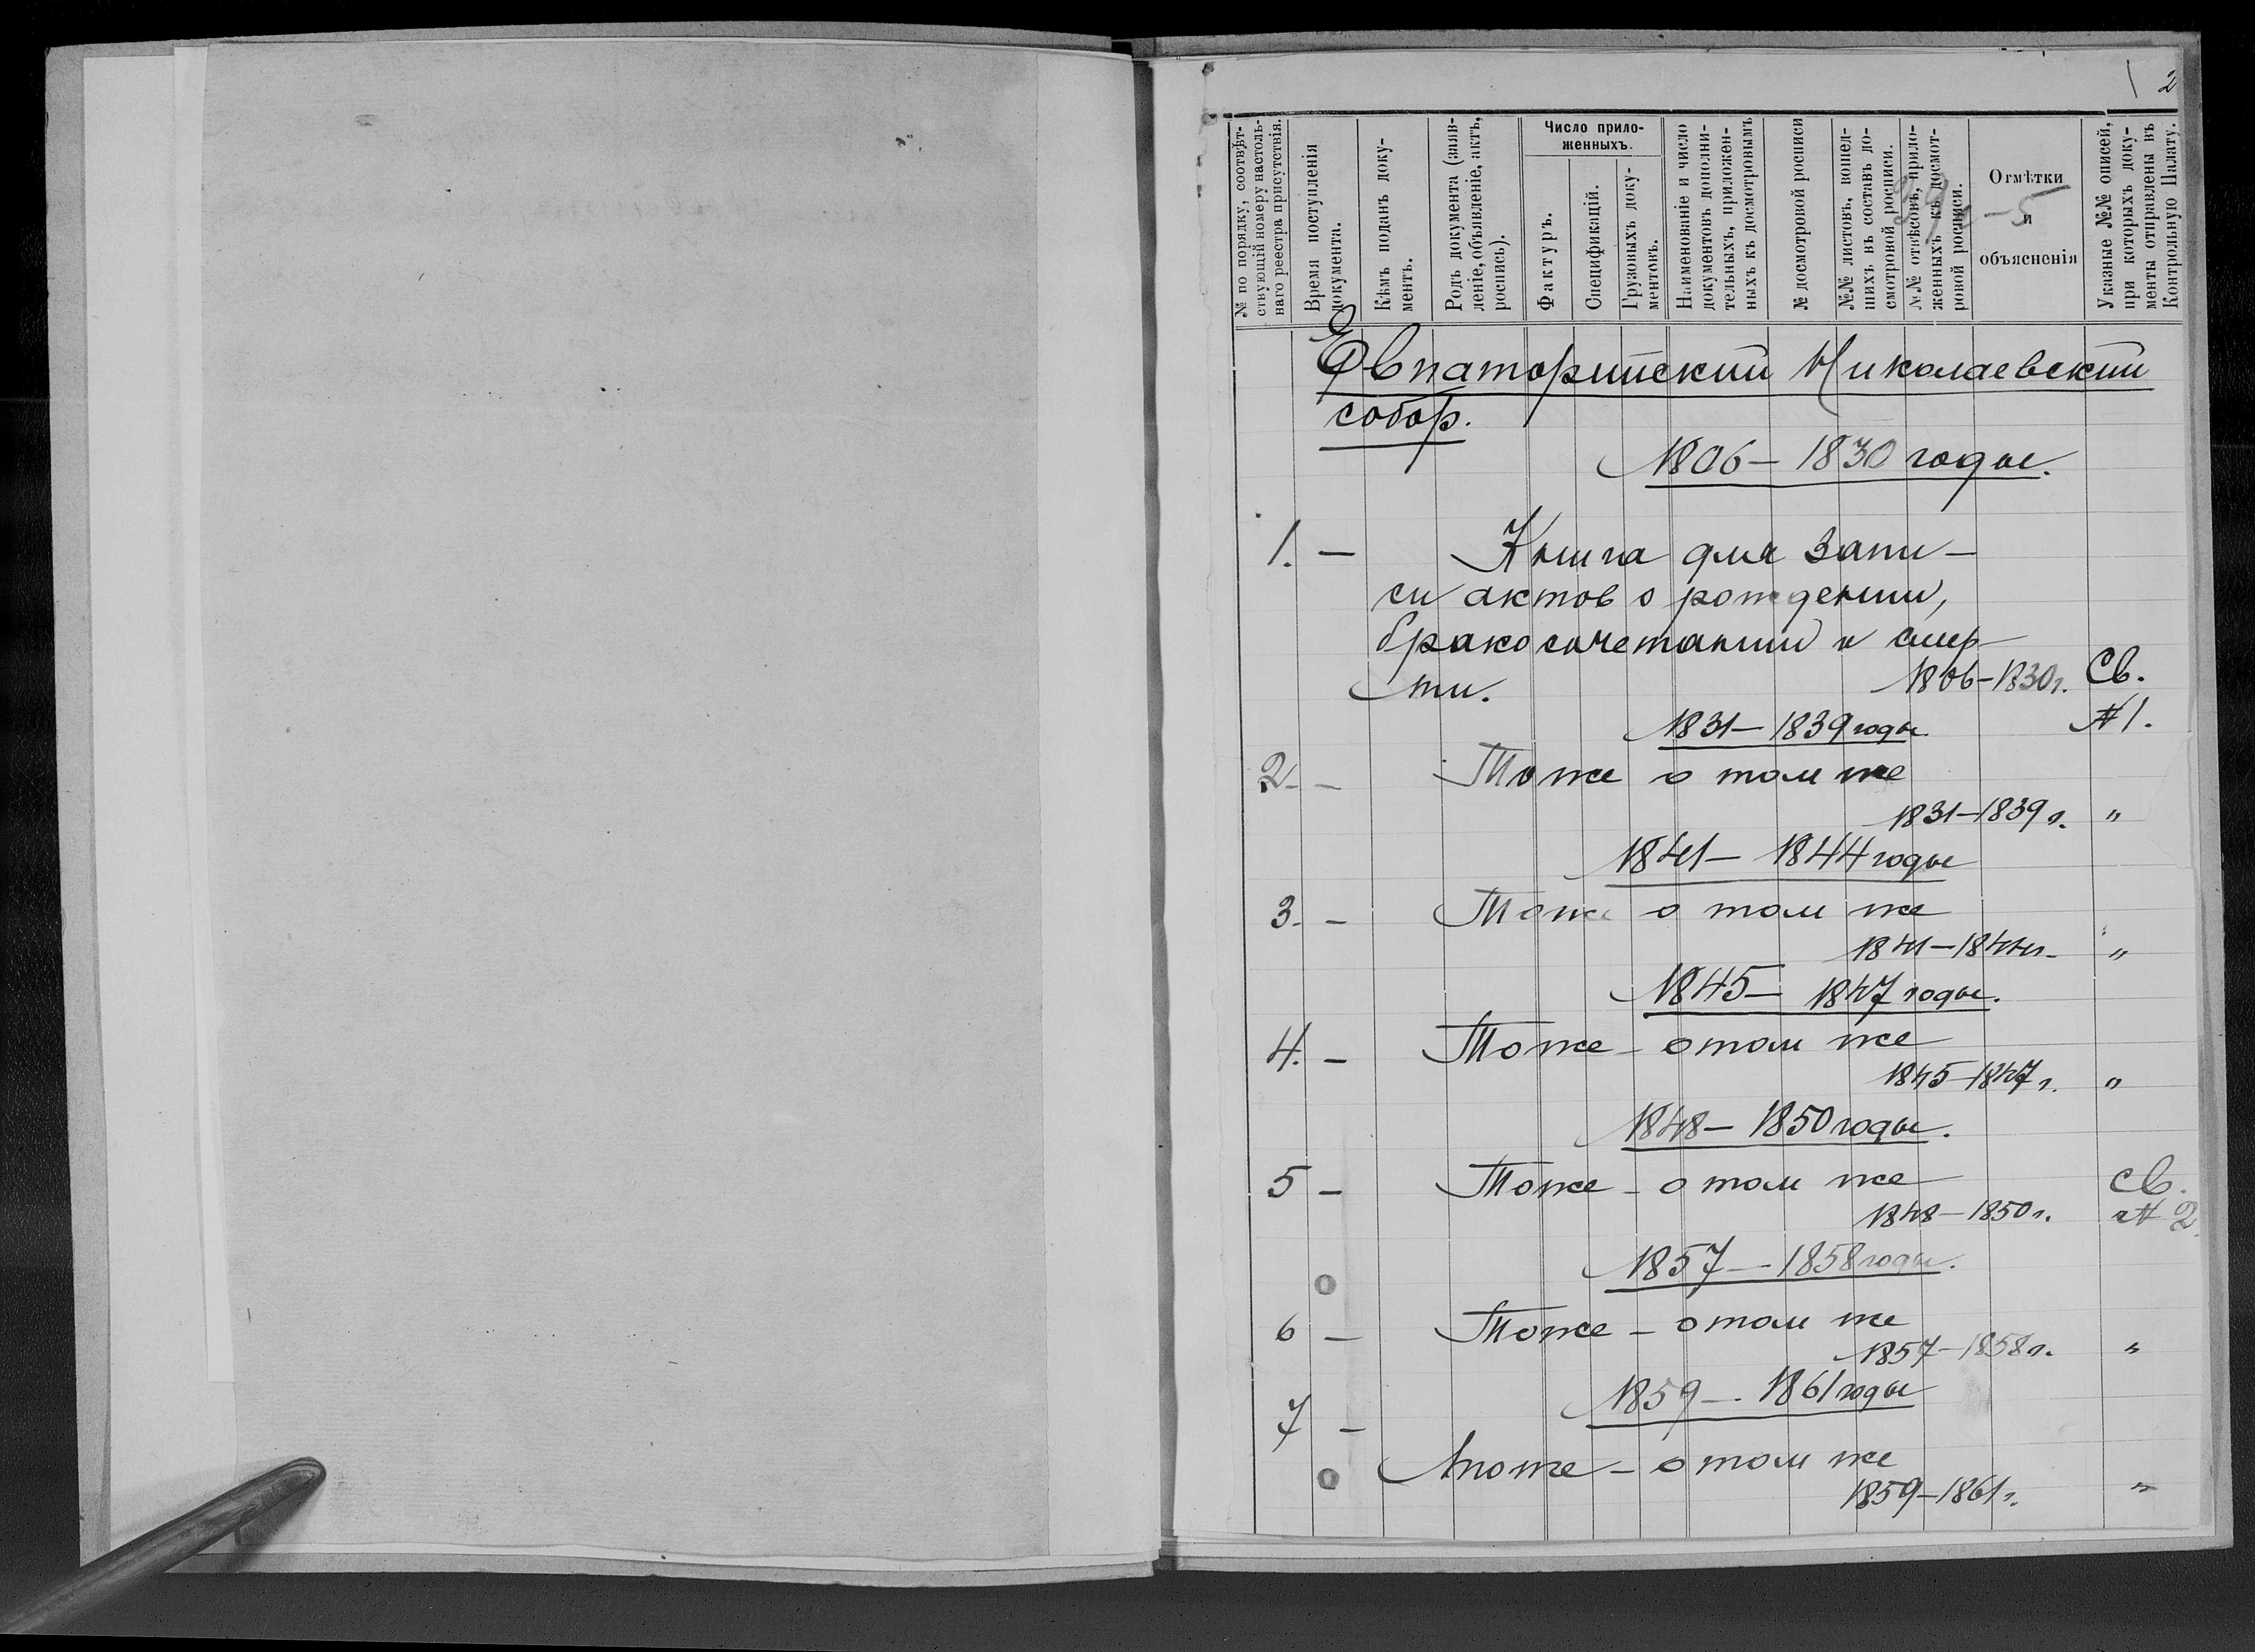 2
№ по порядку, соотвѣт-
ствующій номеру настоль-
наго реестра присутствія.
Время поступленія
документа.
Кѣмъ поданъ доку-
ментъ.
Родъ документа (заяв-
леніе, объявленіе, актъ,
роспись).
Число прило-
женныхъ.
Фактуръ.
Спецификацій.
Грузовыхъ доку-
ментовъ.
Наименованіе и число
документовъ дополни-
тельныхъ, приложен-
ныхъ къ досмотровымъ
№ досмотровой росписи
№№ листовъ, вошед-
шихъ въ составъ до-
смотровой росписи.
№№ отвѣсовъ, прило-
женныхъ къ досмот-
ровой росписи.
Отмѣтки
и
объясненія
Указные №№ описей,
при которыхъ доку-
менты отправлены въ
Контрольную Палату.
Евпаторийский Николаевский
собор.
1806 – 1830 годы.
1. – Книга для запи-
си актов о рождении,
бракосочетании и смер-
ти. 1806-1830 г. Св.
№ 1.
1831 – 1839 годы
2 – Тоже о том же
1831-1839 г. "
1841 – 1844 годы
3. – Тоже о том же
1841-1844 г. "
1845 – 1847 годы.
4. – Тоже – о том же
1845-1847 г. "
1848 – 1850 годы.
5 – Тоже – о том же Св.
1848-1850 г. № 2
1857 – 1858 годы.
6 – Тоже – о том же
1857-1858 г. "
1859 – 1861 годы
7 –
Тоже – о том же
1859-1861 г. "